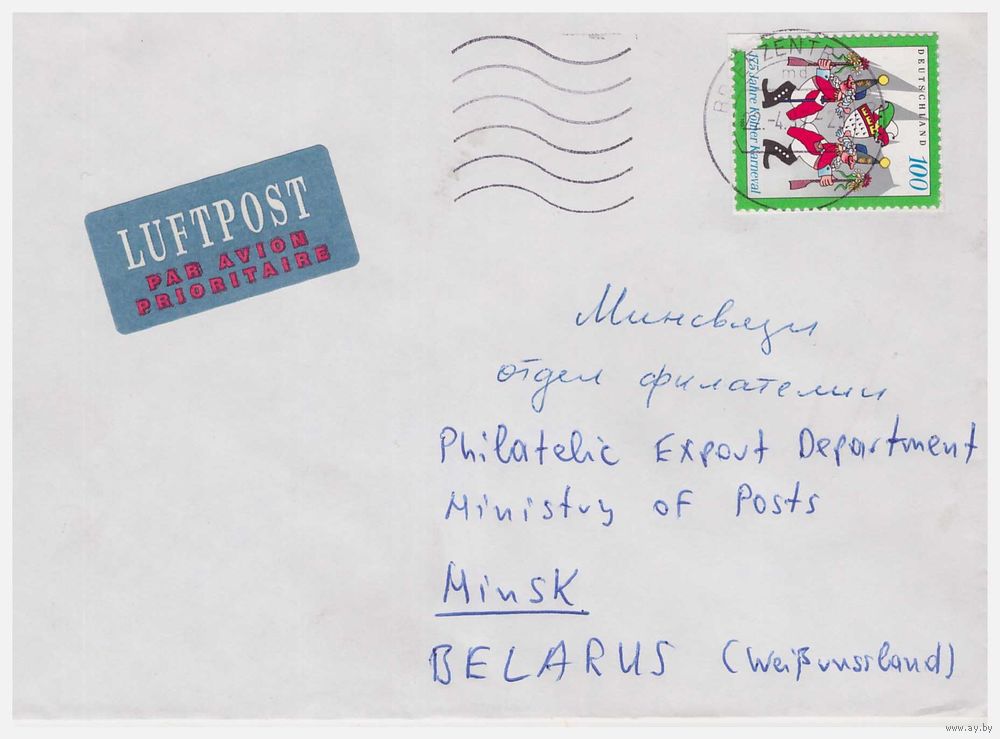 LUFTPOST
PAR AVION
PRIORITAIRE
DEUTSCHLAND
100
175 Jahre Kölner Karneval
Минсвязи
отдел филателии
Philatelic Export Department
Ministry of Posts
Minsk
BELARUS (Weißrussland)
www.ay.by